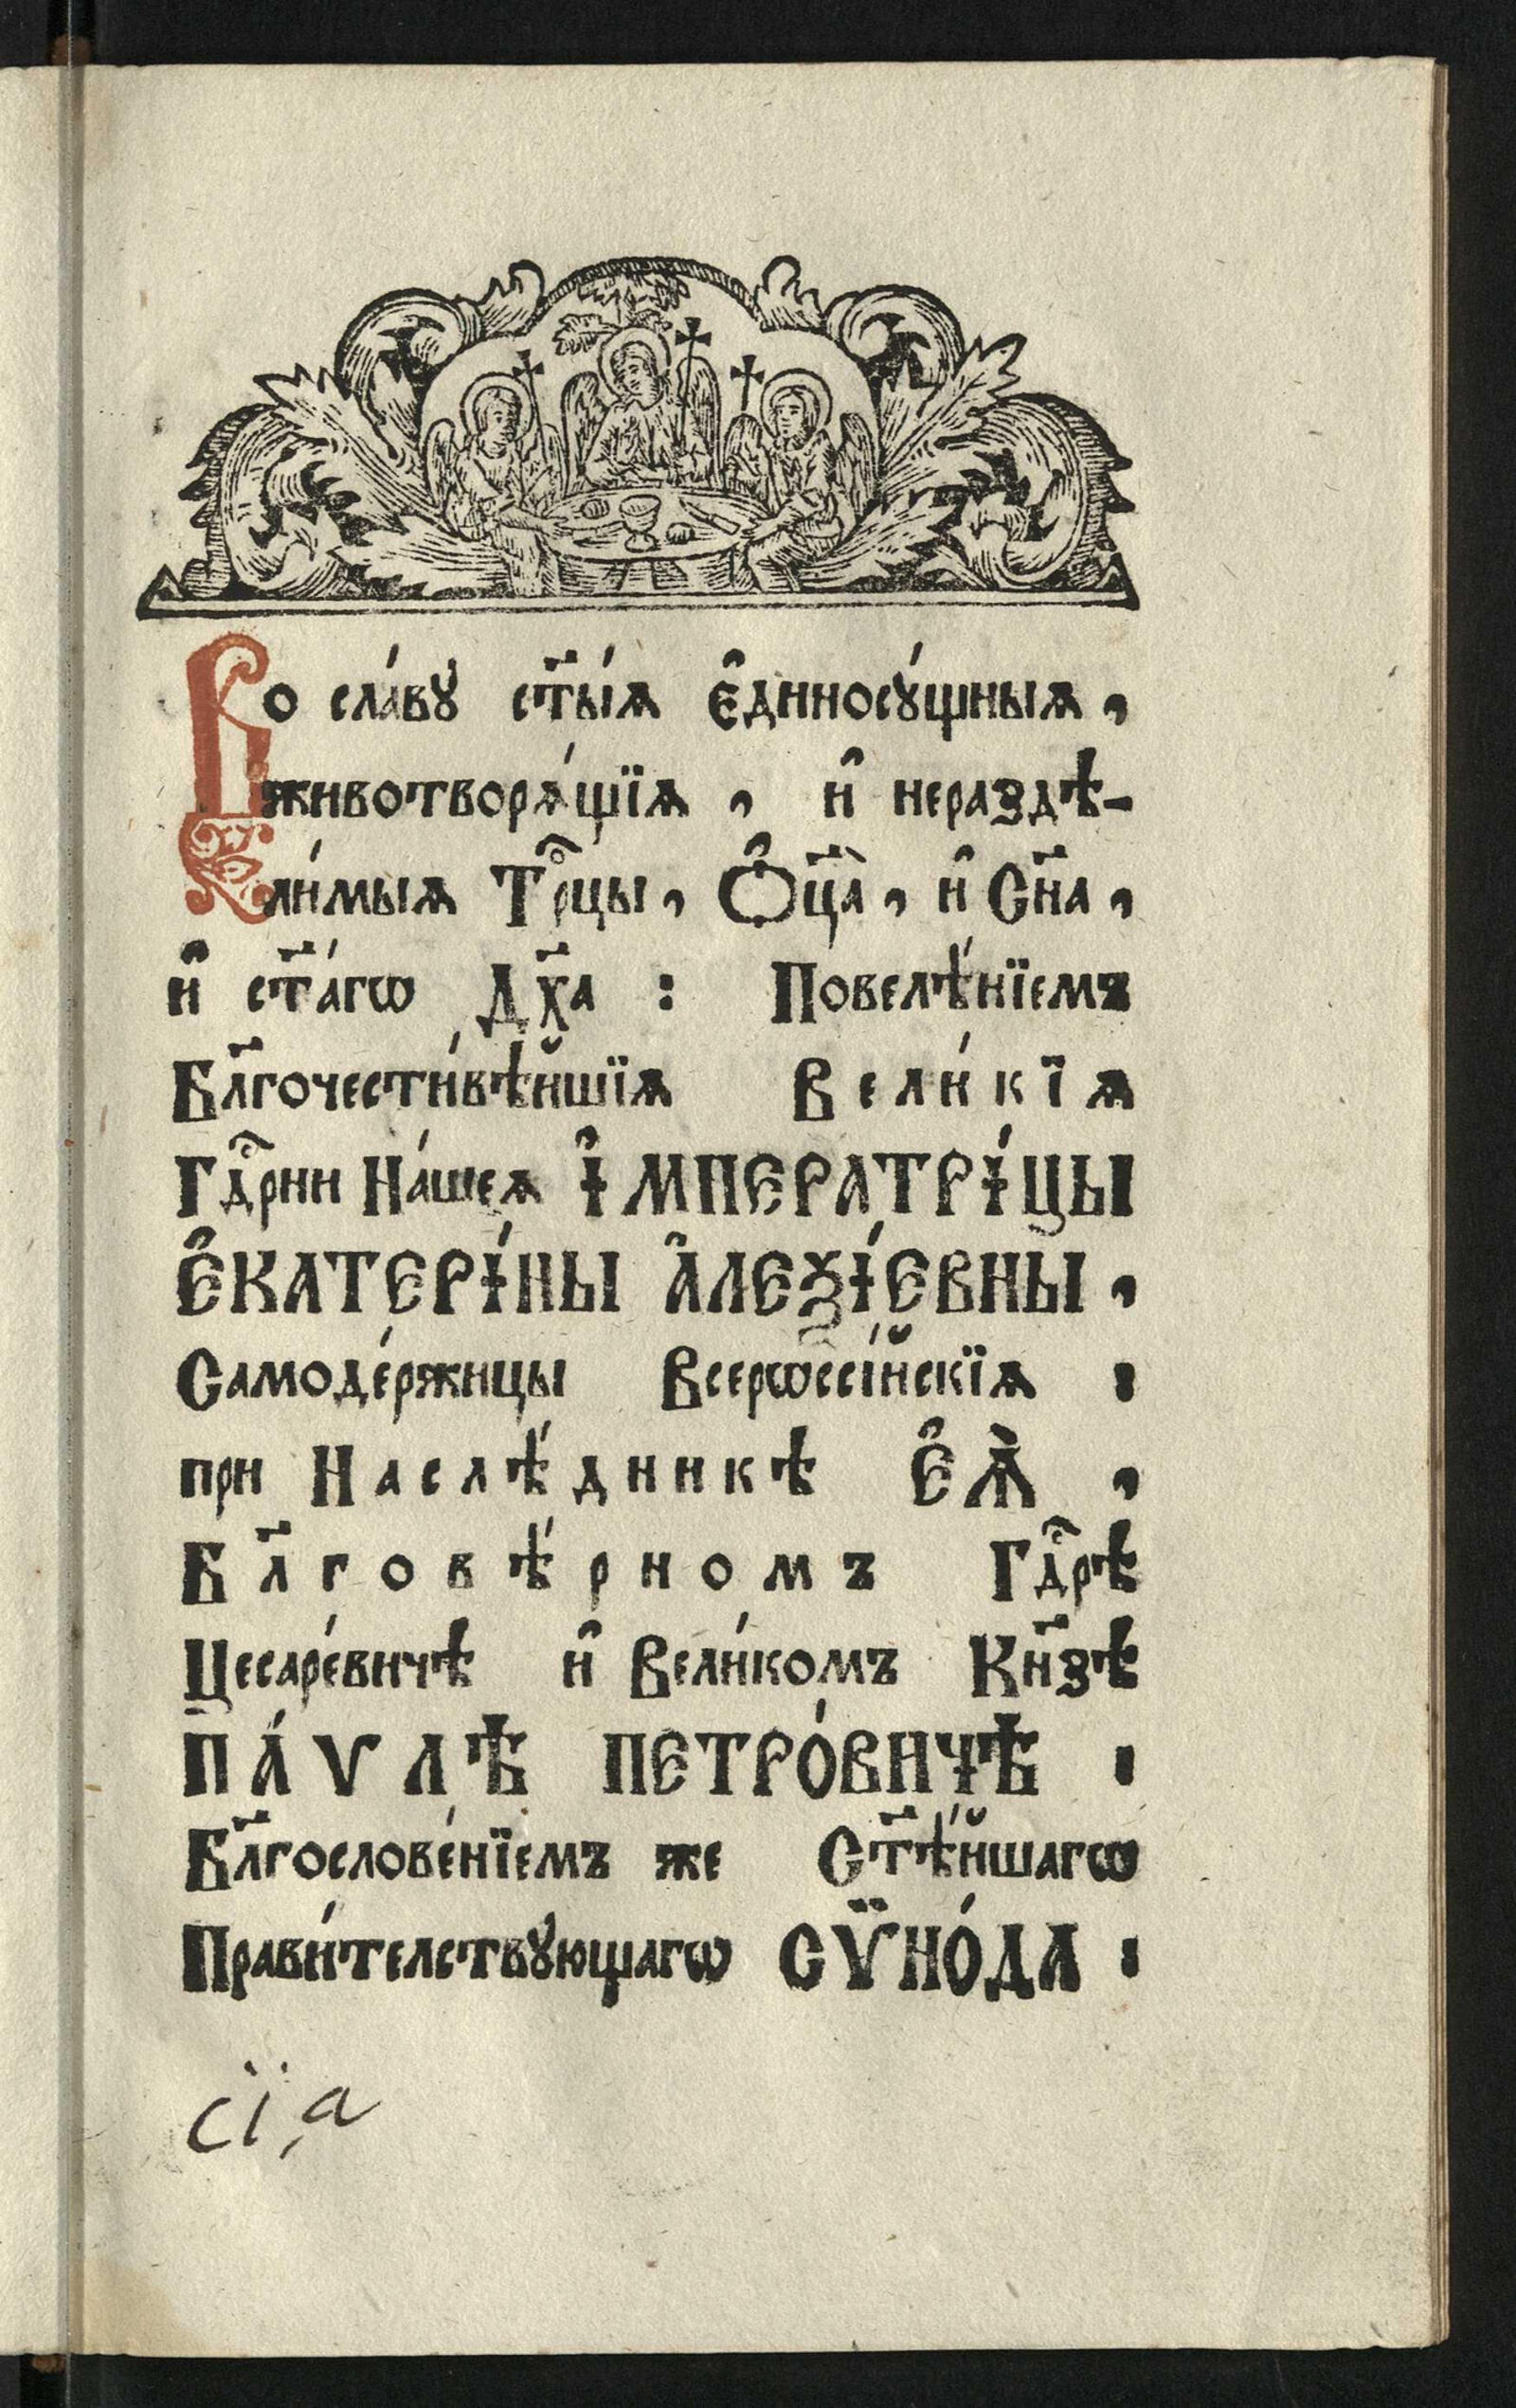 Во сла́вꙋ ст҃ы́ѧ є҆диносꙋ́щныѧ,
животворѧ́щїѧ, и҆ нераздѣ-
ли́мыѧ Трⷪ҇цы, Ѻ҆ц҃а̀, и҆ Сн҃а,
и҆ ст҃а́гѡ Дх҃а : Повелѣ́нїемъ
Бл҃гочести́вѣйшїѧ Вели́кїѧ
Гдⷭ҇рни На́шеѧ І҆МПЕРАТРІ́ЦЫ
Е҆КАТЕРІ́НЫ А҆ЛЕѮІ́ЕВНЫ,
Самоде́ржицы Всерѡссі́йскїѧ :
при Наслѣ́дникѣ Е҆Ѧ̀,
Бл҃говѣ́рномъ Гдⷭ҇рѣ
Цесаре́вичѣ и҆ Вели́комъ Кн҃зѣ
ПА́ѴЛѢ ПЕТРО́ВИЧѢ :
Бл҃гослове́нїемъ же Ст҃ѣ́йшагѡ
Прави́телствꙋющагѡ СѴ̈НО́ДА :
сї,а